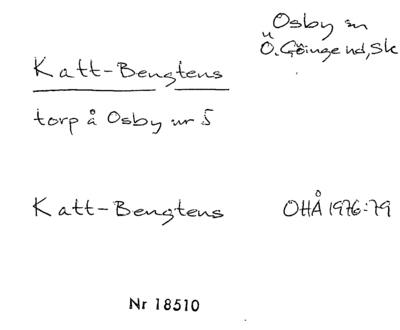 Osby sn
Ö. Göinge hd, Sk
Katt-Bengtens
torp å Osby nr 5
Katt-Bengtens OHÅ 1976:79
Nr 18510